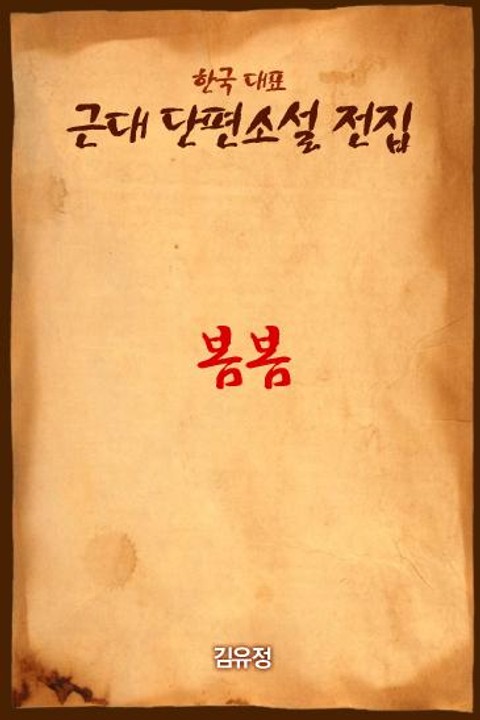 한국 대표
근대 단편소설 전집
봄봄
김유정